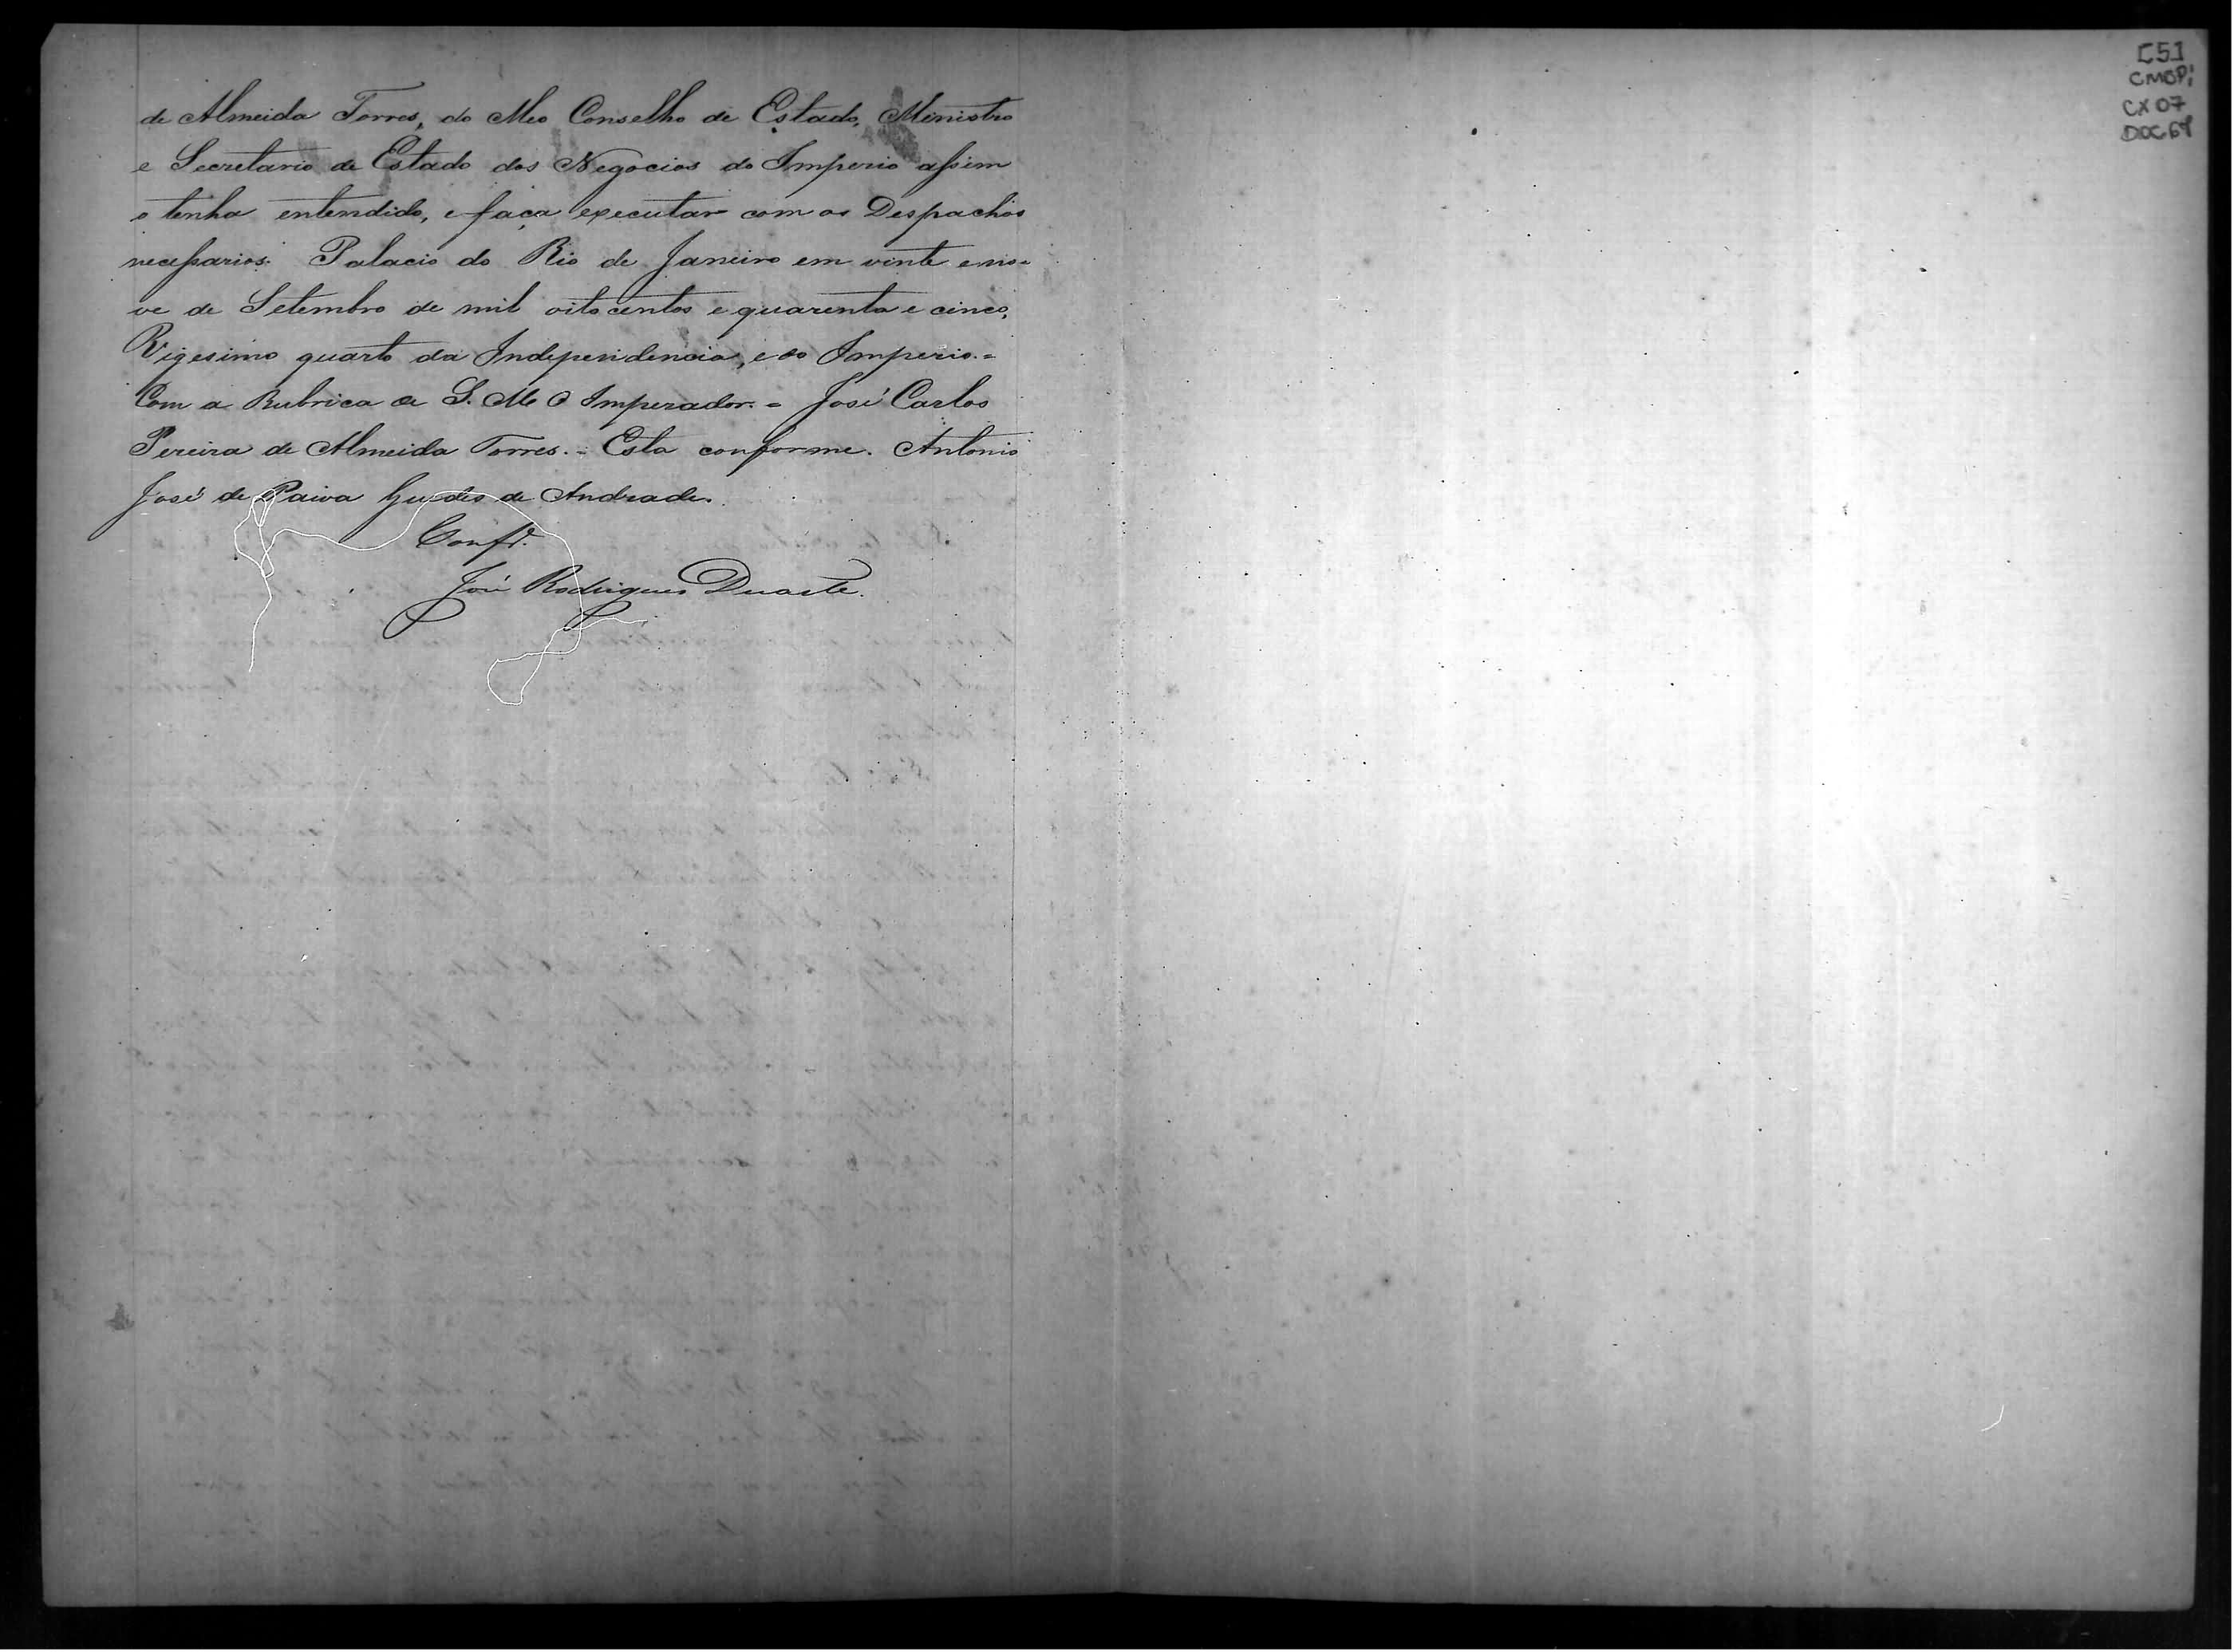 de Almeida Torres, do Meo Conselho de Estado, Ministro
e Secretario de Estado dos Negocios do Imperio assim
o tenha entendido, e faça executar com os Despachos
necessarios. Palacio do Rio de Janeiro em vinte e no-
ve de Setembro de mil oitocentos e quarenta e cinco,
Vigesimo quarto da Independencia, e do Imperio.=
Com a Rubrica de S. M. O Imperador.= José Carlos
Pereira de Almeida Torres.= Esta conforme. Antonio
José de Paiva Guedes de Andrade.
Conf.e
José Rodrigues Duarte.
[5]
CMOP;
CX 07
DOC 61